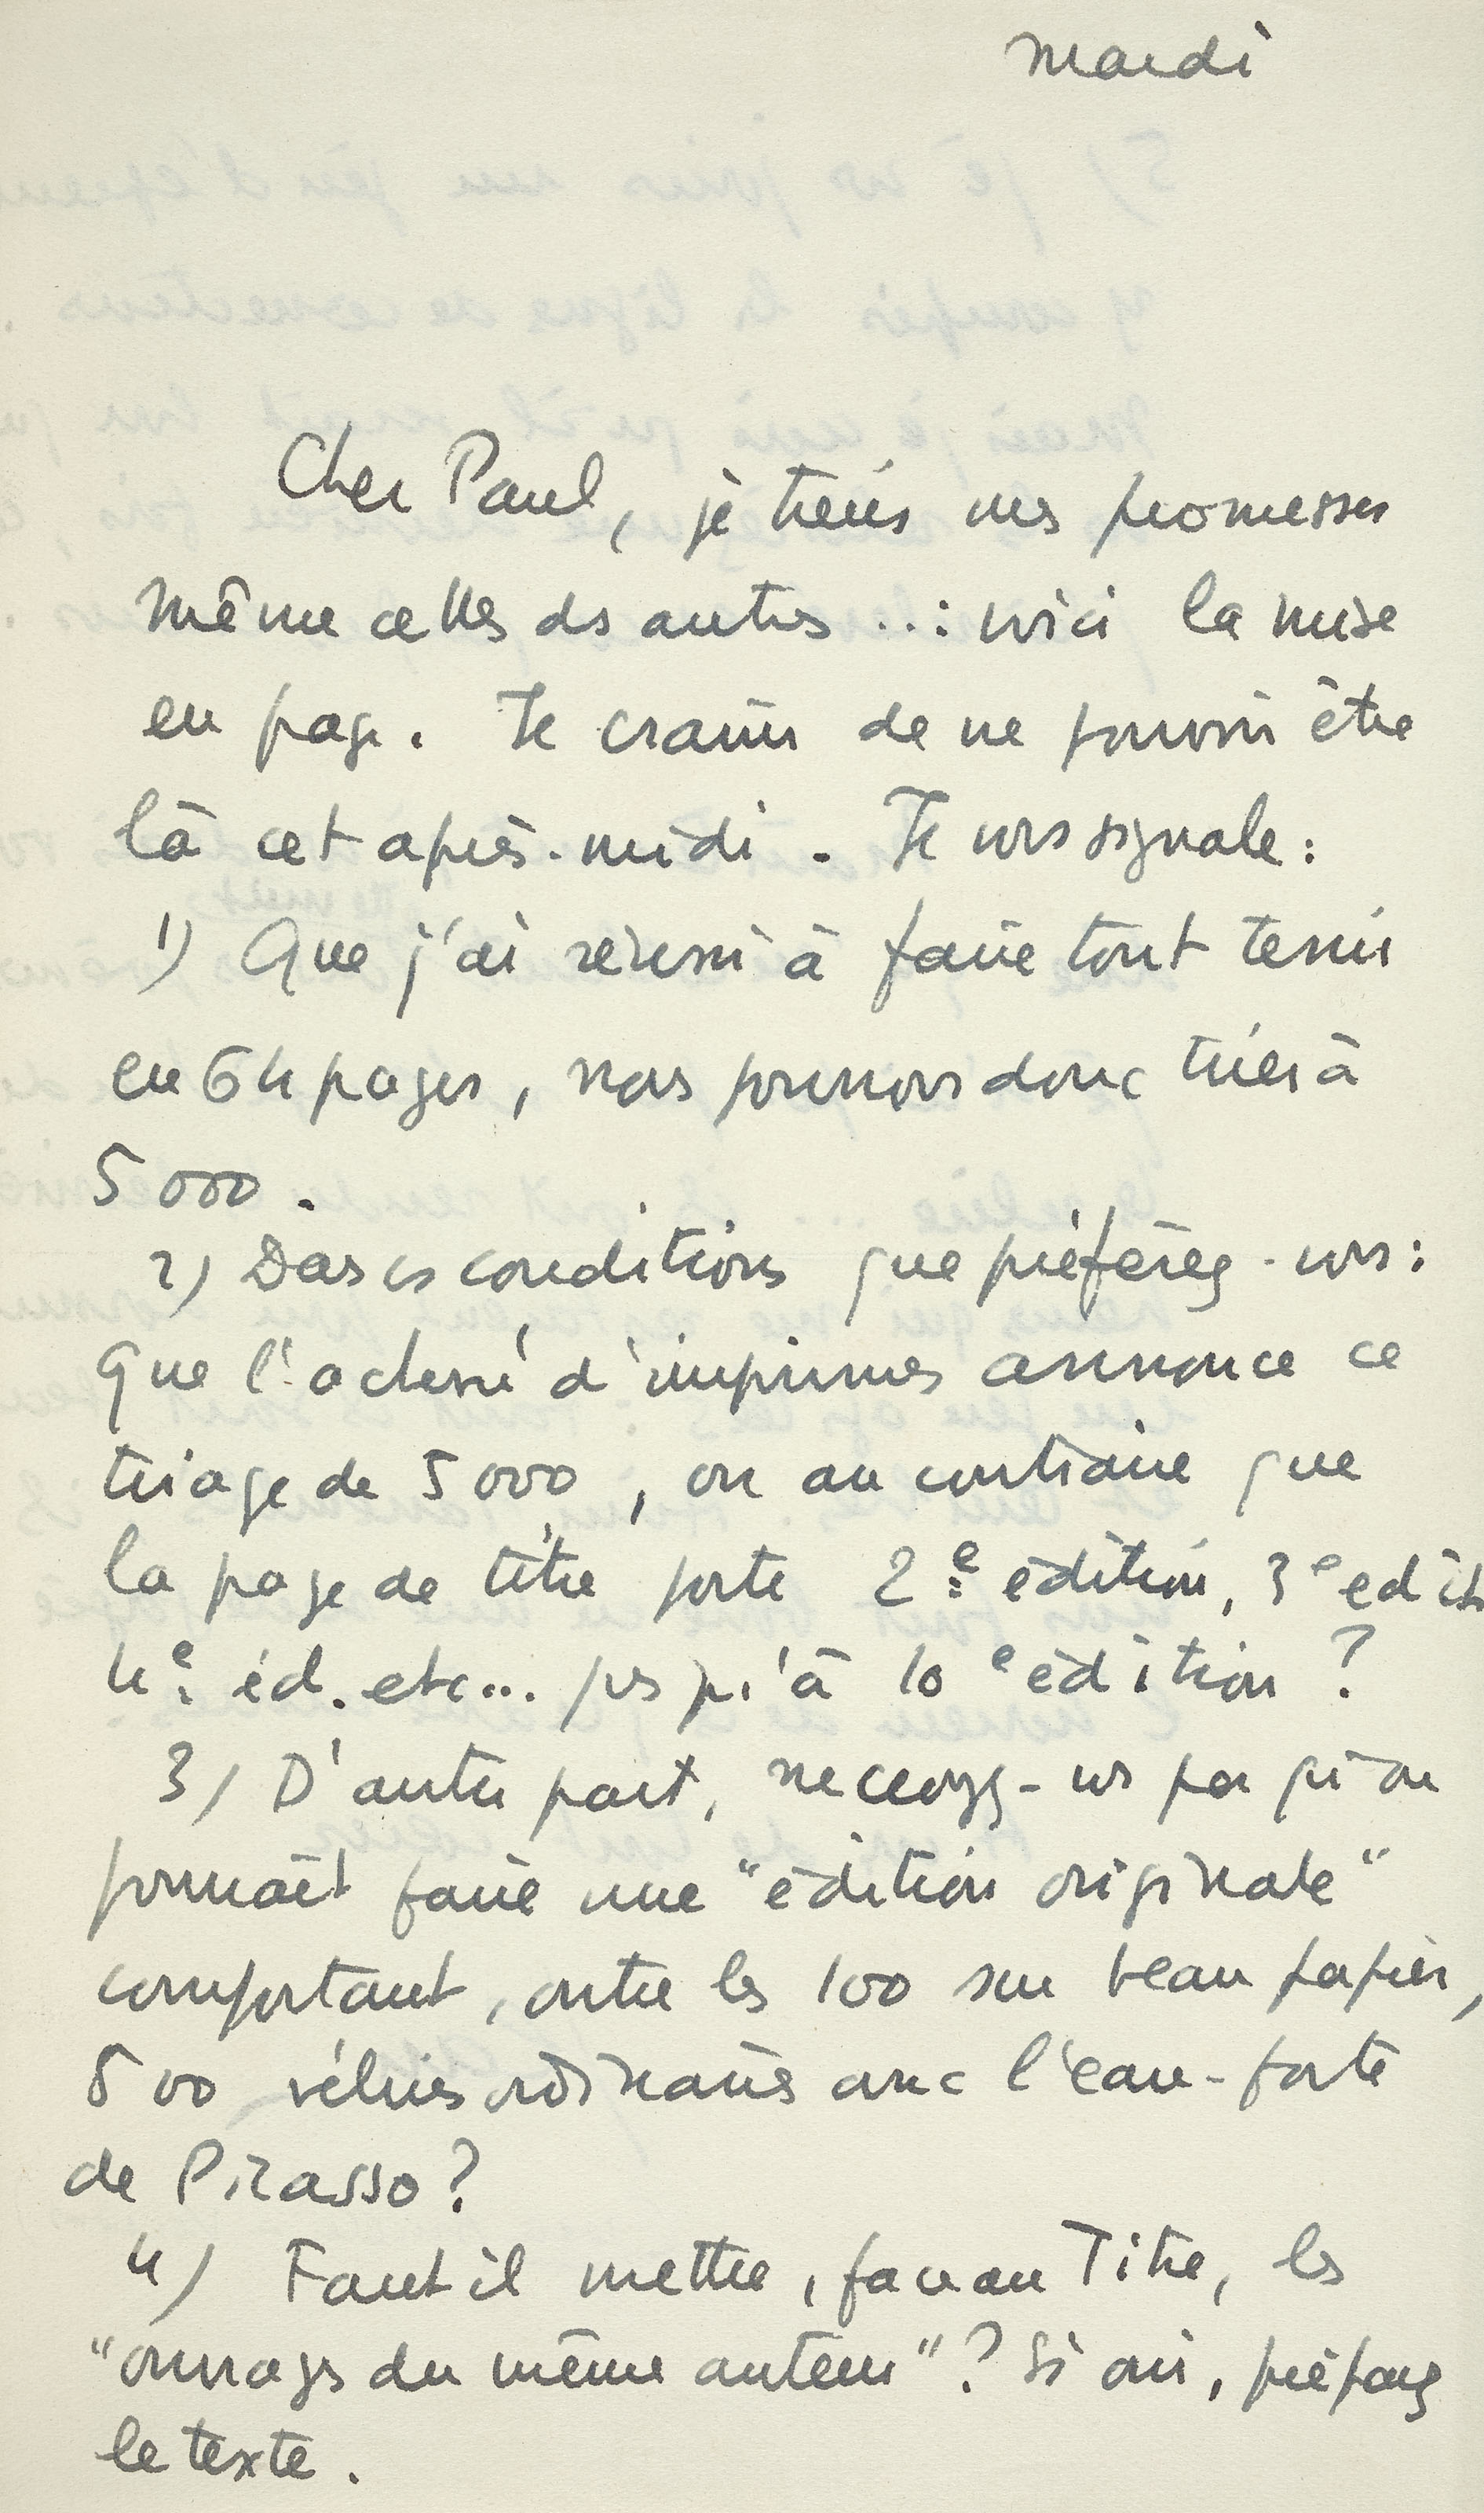 mardi
Cher Paul, je tiens mes promesses
même celles des autres ...: voici la mise
en page. Je crains de ne pouvoir être
là cet après-midi. Je vous signale:
1) Que j'ai réussi à faire tout tenir
en 64 pages, nous pourrons donc tirer à
5000.
2) Dans ces conditions que préférez-vous:
Que l'achevé d'imprimer annonce ce
tirage de 5000, ou au contraire que
la page de titre porte 2e édition, 3e edit
4e éd. etc... jusqu'à 10e édition?
3) D'autre part, ne croyez-vs pas qu'on
pourrait faire une "édition originale"
comportant, outre les 100 sur beau papier,
500 vélins ordinaires avec l'eau-forte
de Picasso?
4) Faut il mettre, face au Titre, les
"ouvrages du même auteur"? Si oui, préparez
le texte.